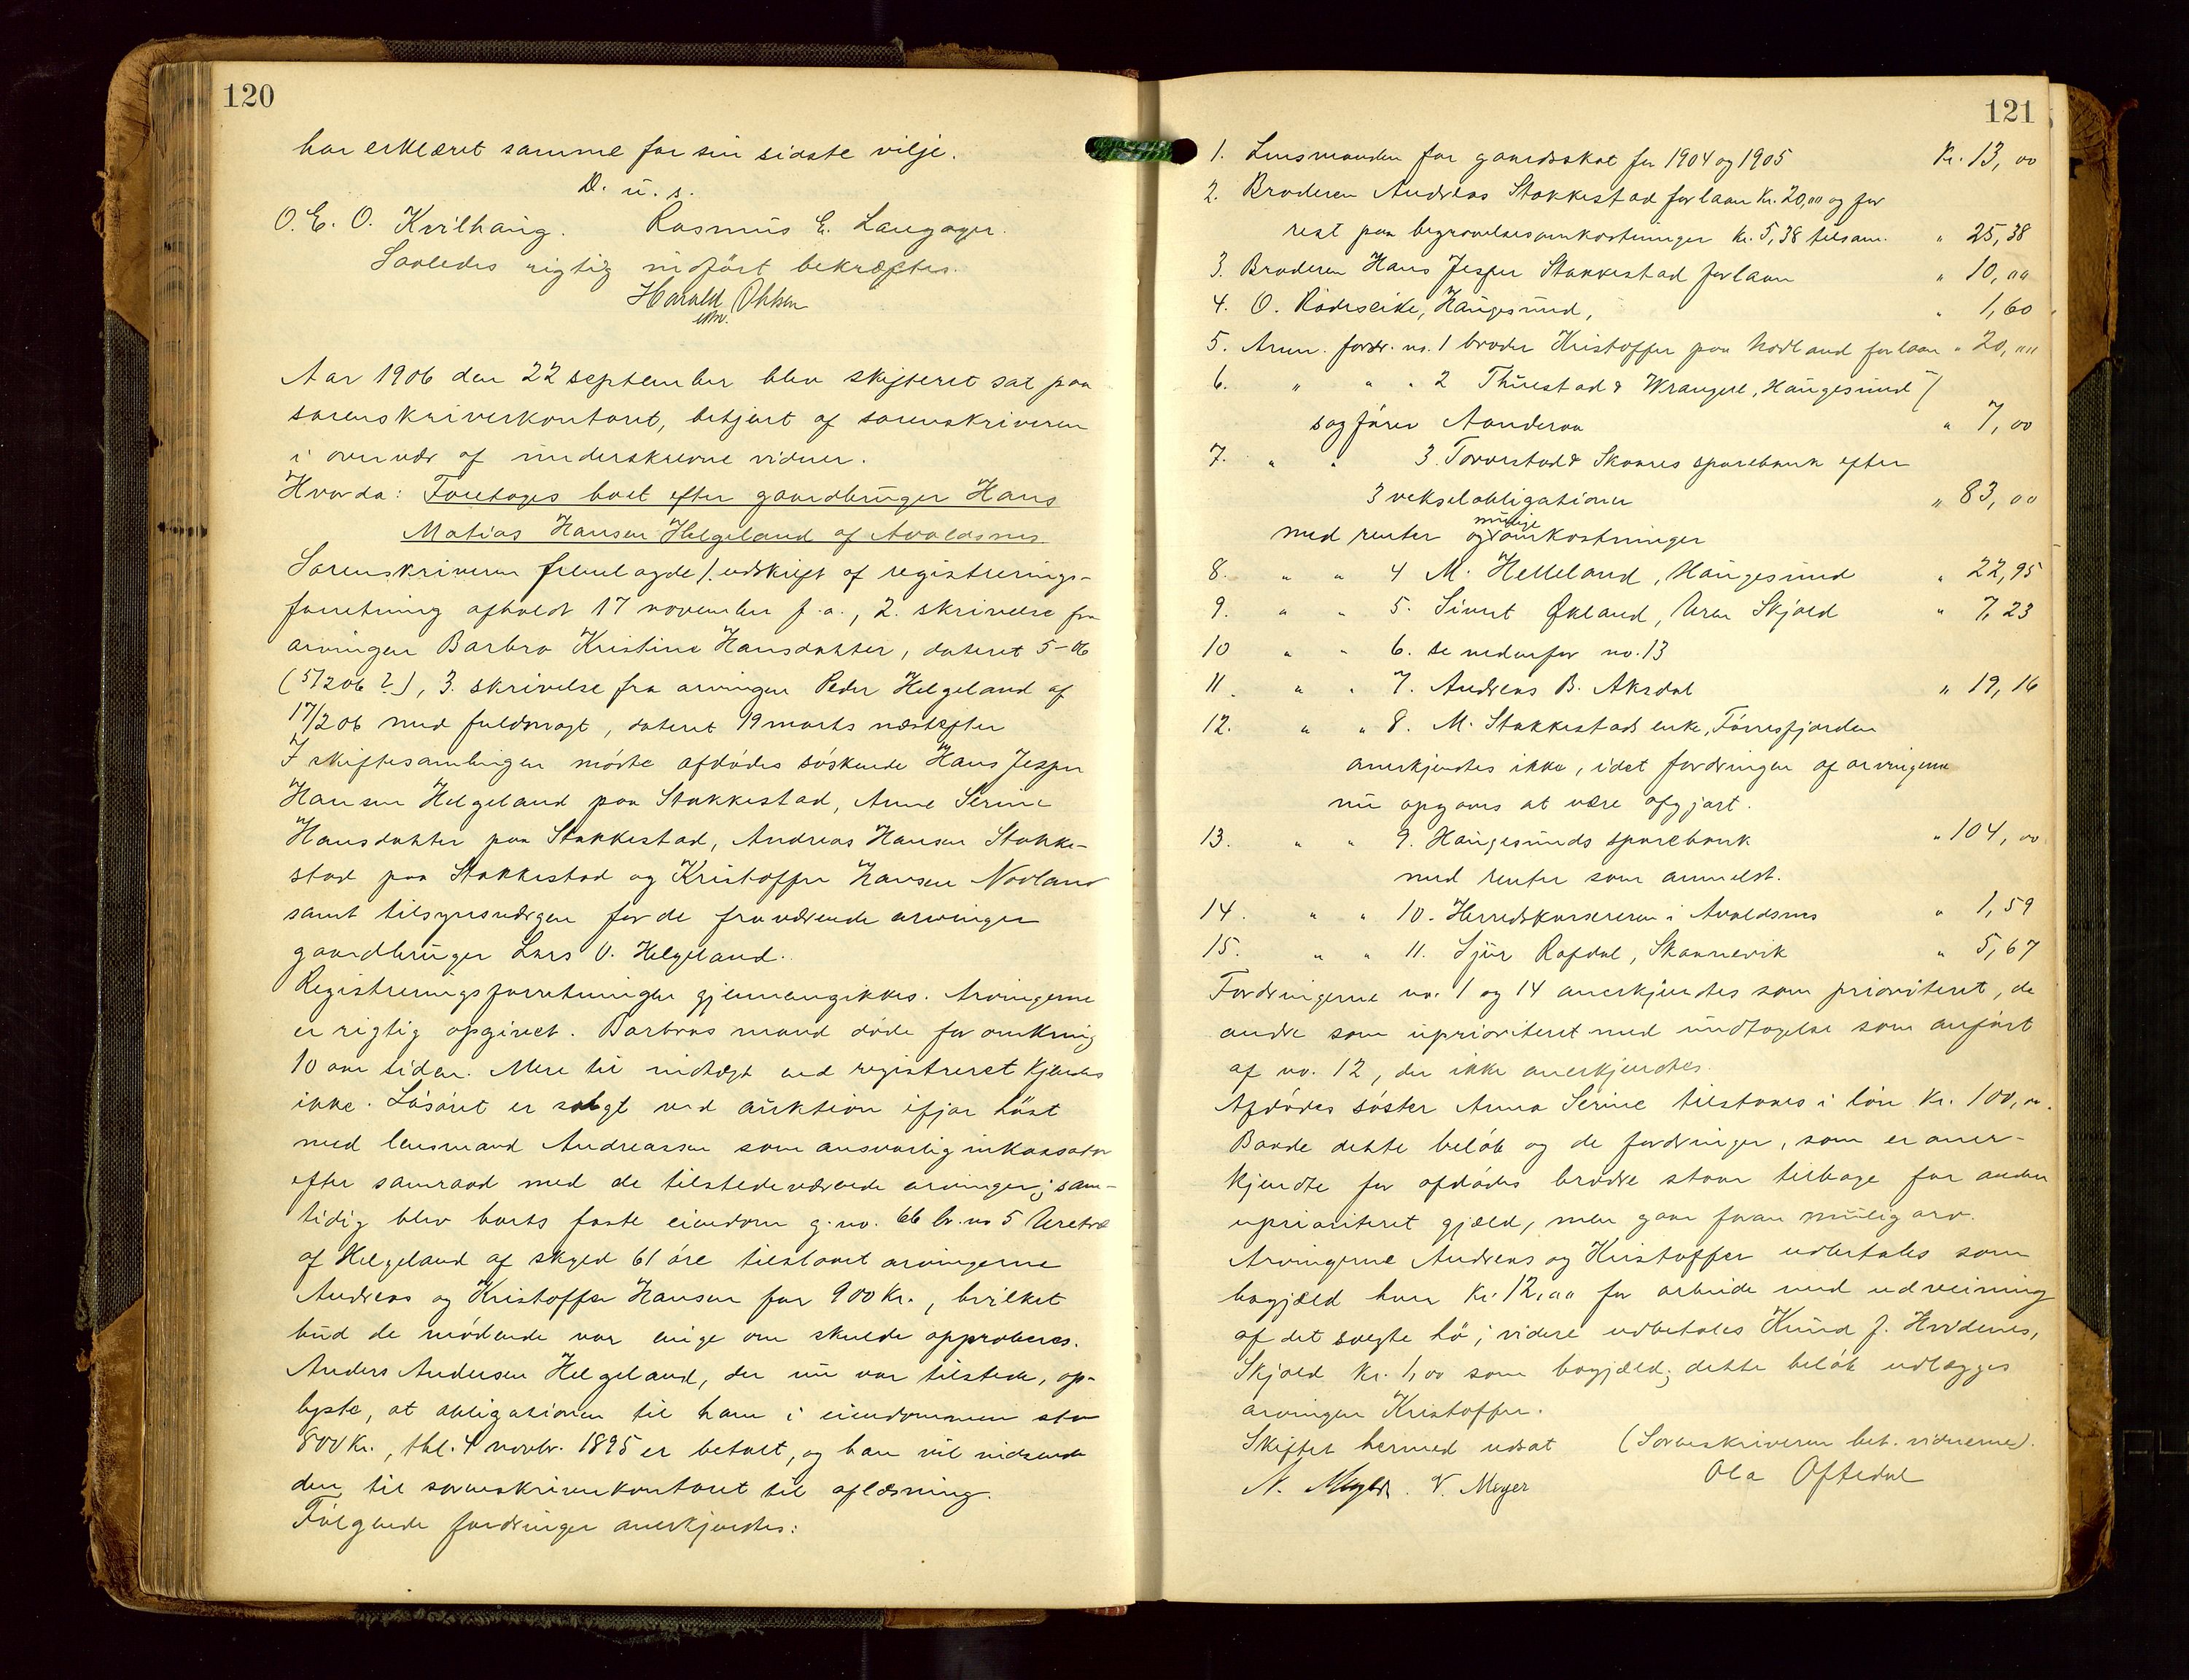 120
har erklæret samme for sin sidste vilje.
D. u. s.
O. E. O. Kvilhaug. Rasmus E. Langager.
Saaledes rigtig indført bekræftes.
Harald Ohlsen
Aar 1906 den 22 september blev skifteret sat paa
sorenskriverkontoret, betjent af sorenskriveren
i overvær af underskrevne vidner.
Hvorda: Foretoges boet efter gaardbruger Hans
Matias Hansen Helgeland af Avaldsnes.
Sorenskriveren fremlagde 1. udskrift af registrerings-
forretning afholdt 17 november f.a., 2. skrivelse fra
arvingen Barbro Kristine Hansdatter, dateret 5-06
(5/2 06 ?), 3. skrivelse fra arvingen Peder Helgeland af
17/2 06 med fuldmagt, dateret 19 marts næstefter
I skiftesamlingen mødte afdødes søskende Hans Jesper
Hansen Helgeland paa Stakkestad, Anne Serine
Hansdatter paa Stakkestad, Andreas Hansen Stakke-
stad paa Stakkestad og Kristoffer Hansen Norland
samt tilsynsværgen for de fraværende arvinger
gaardbruger Lars O. Helgeland.
Registreringsforretningen gjennemgikkes. Arvingerne
er rigtig opgivet. Barbros mand døde for omkring
10 aar siden. Mere til indtægt end registreret kjendes
ikke. Løsøret er solgt ved auktion ifjor høst
med lensmand Andreassen som ansvarlig inkassator
efter samraad med de tilstedeværende arvinger; sam-
tidig blev boets faste eiendom g.no. 66 br.no 5 Uretræ
af Helgeland af skyld 61 øre tilslaaet arvingerne
Andreas og Kristoffer Hansen for 900 kr., hvilket
bud de mødende var enige om skulde approberes.
Anders Andersen Helgeland, der nu var tilstede, op-
lyste, at obligationen til ham i eiendommen stor
800 kr., thl. 4 novbr. 1895 er betalt, og han vil indsende
den til sorenskriverkontoret til aflæsning.
Følgende fordringer anerkjendtes:
121
1. Lensmanden for gaardsskat for 1904 og 1905 Kr. 13,00
2. Broderen Andreas Stakkestad for laan kr. 20,00 og for
rest paa begravelsesomkostninger kr. 5,38 tilsam. " 25,38
3. Broderen Hans Jesper Stakkestad for laan " 10,00
4. O. Rødeseike, Haugesund, " 1,60
5. Anm. fordr. no. 1 broder Kristoffer paa Nordland for laan " 20,""
6. " " " 2 Thuestad & Wrangell, Haugesund /
sagfører Aanderaa " 7,00
7. " " 3. Torvestad & Skaares sparebank efter
3 vekselobligationer " 83,00
med renter og mulige omkostninger
8. " " 4 M. Helleland, Haugesund " 22,95
9. " " 5. Sivert Økland, Skjold " 7,23
10 " " 6. se nedenfor no. 13
11. " " 7. Andreas B. Aksdal " 19,16
12. " " 8. M. Stakkestads enke, Førresfjorden
anerkjendtes ikke, idet fordringen af arvingerne
nu opgaves at være afgjort.
13. " " 9. Haugesunds sparebank " 104,00
med renter som anmeldt.
14. " " 10. Herredskassereren i Avaldsnes " 1,59
15. " " 11. Sjur Rafdal, Skaanevik " 5,67
Fordringerne no. 1 og 14 anerkjendtes som prioriteret, de
andre som uprioriteret med undtagelse som anført
af no. 12, der ikke anerkjendtes.
Afdødes søster Anna Serine tilstaaes i løn kr. 100,00.
Baade dette beløb og de fordringer, som er aner-
kjendte for afdødes brødre staar tilbage for anden
uprioriteret gjæld, men gaar foran mulig arv.
Arvingerne Andreas og Kristoffer udbetales som
bogjæld hver kr. 12,00 for arbeide med udveining
af det solgte hø; videre udbetales Knud J. Hvidenes,
Skjold kr. 1,00 som bogjæld; dette beløb udlægges
arvingen Kristoffer.
Skiftet hermed udsat (Sorenskriveren bet. vidnerne).
N. Meyer. V. Meyer Ola Oftedal